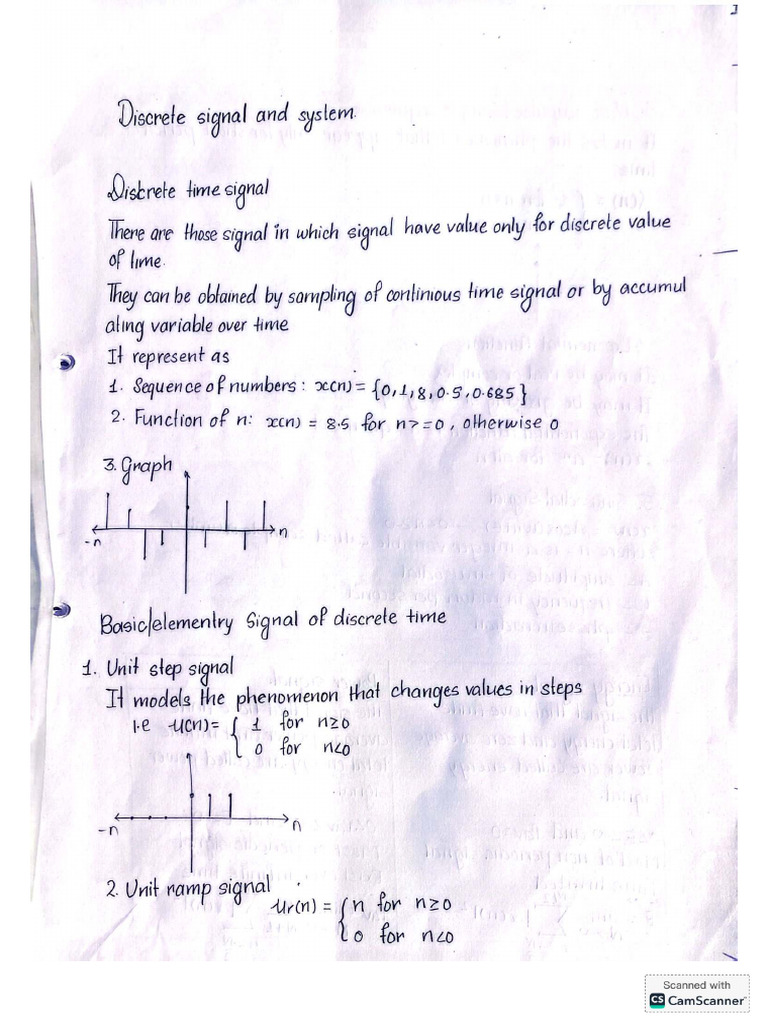 1
Discrete signal and system.
Discrete time signal
There are those signal in which signal have value only for discrete value
of time.
They can be oblained by sampling of continious time signal or by accumul
ating variable over time
It represent as
1. Sequence of numbers : x(n) = {0,1,8,0.5,0.685}
2. Function of n: x(n) = 8.5 for n>=0, otherwise 0
3. Graph
-n
n
Basic/elementry Signal of discrete time
1. Unit step signal
It models the phenomenon that changes values in steps
i.e u(n) = { 1 for n≥0
0 for n<0
-n
n
2. Unit ramp signal
ur(n) = { n for n≥0
0 for n<0
Scanned with
CS CamScanner